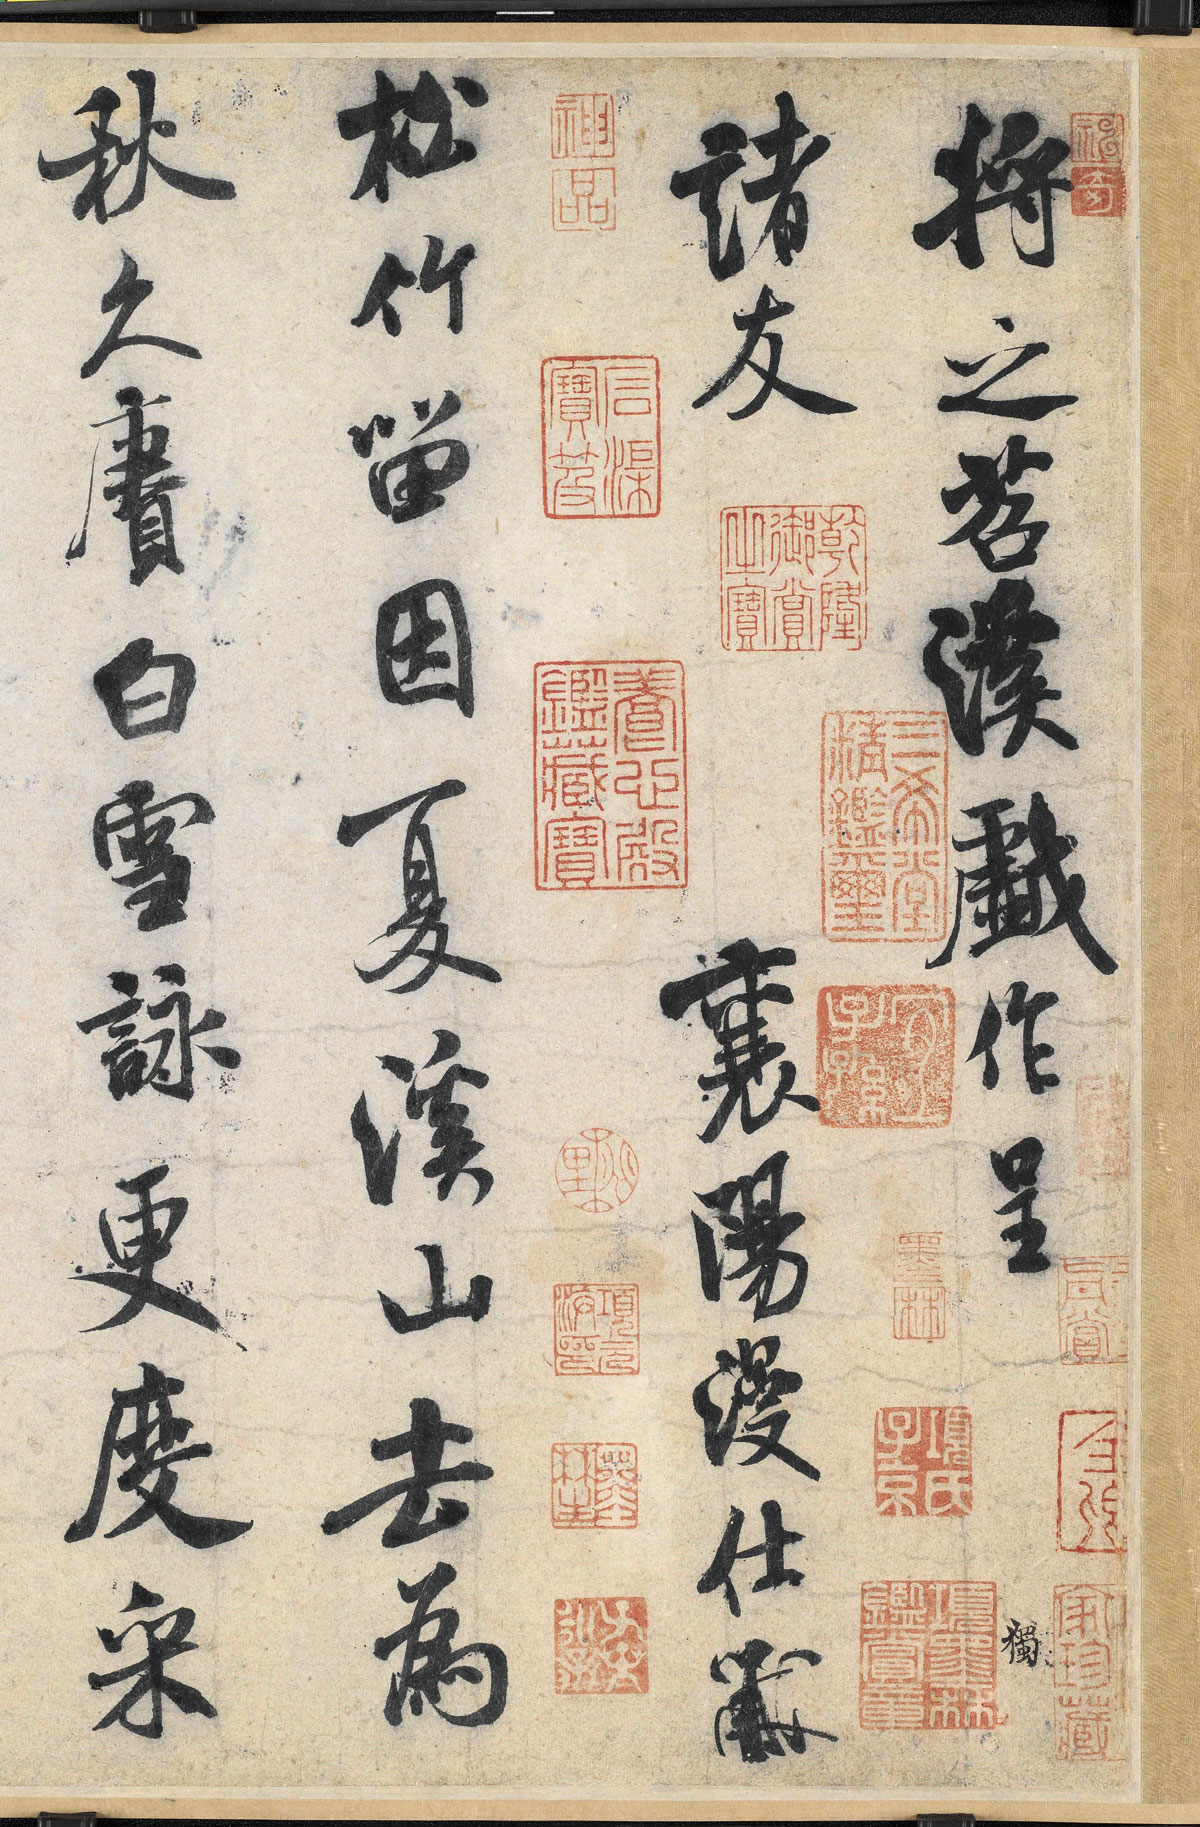 將之苕溪戲作呈
諸友
襄陽漫仕黻
松竹留因夏溪山去為
秋久賡白雪詠更度采
獨
神品
乾隆御賞之寶
三希堂精鑑璽
宜子孫
養心殿鑑藏寶
石渠寶笈
墨林
項元汴印
項氏子京
項墨林鑑賞章
家珍藏